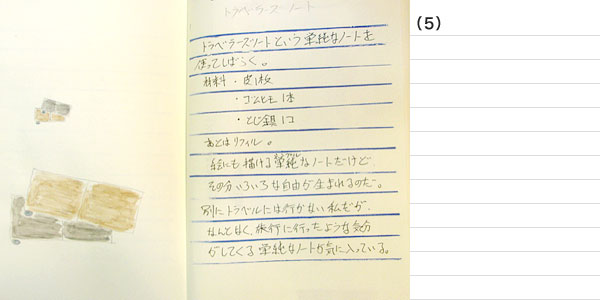 トラベラーズノート
トラベラーズノートという単純なノートを
使ってしばらく。
材料・皮1枚
・ゴムヒモ1本
・とじ銀1コ
あとはリフィル。
絵にも描ける単純なノートだけど
その分いろいろな自由が生まれるのだ。
別にトラベルには行かない私もが
なんとなく、旅行に行ったような気分
がしてくる単純なノートが気に入っている。
(5)